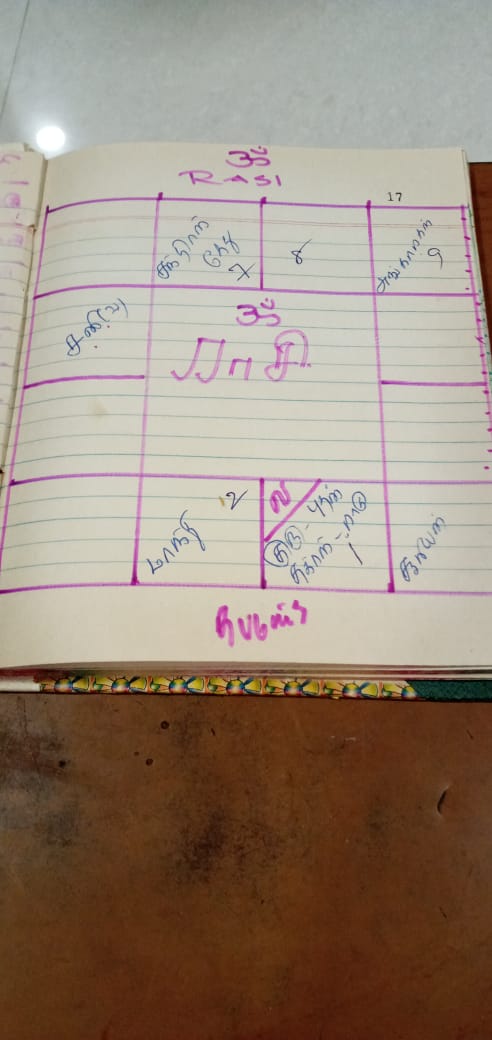 ௐ
RASI
17
சந்திரன்
கேது
7
8
அங்காரகன்
9
சனி(வ)
ௐ
ராசி
2
மாந்தி
ல
புதன்
குரு
ராகு
சுக்ரன்
1
சூரியன்